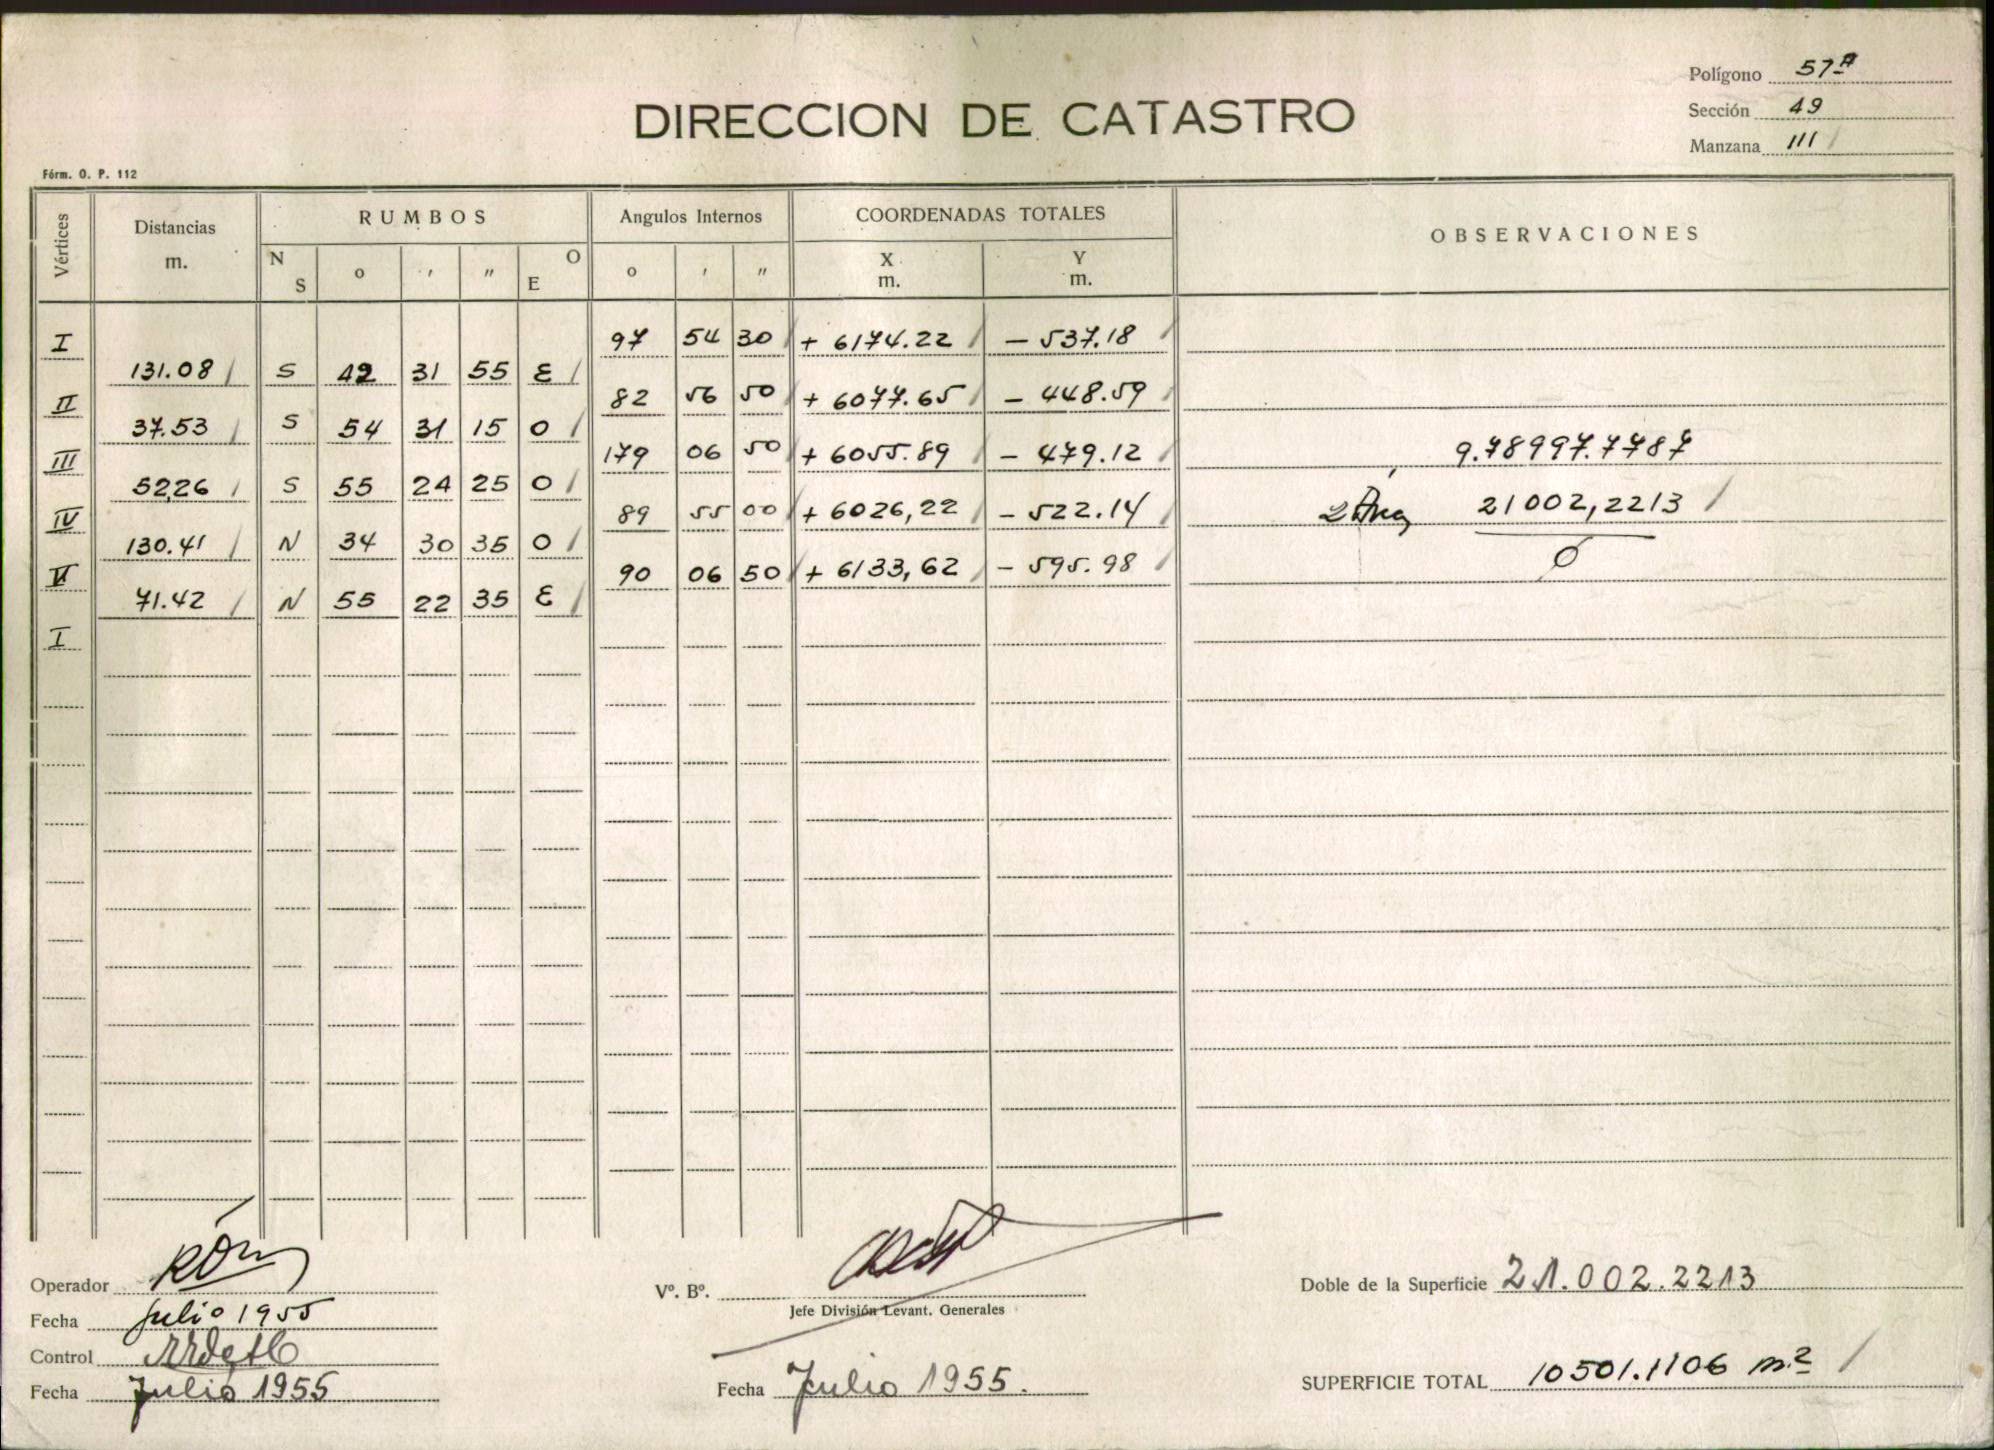 Polígono 57ª
Sección 49
Manzana 111
DIRECCION DE CATASTRO
Fórm. O. P. 112
Vértices Distancias m. RUMBOS N S o ' " O E Angulos Internos o ' " COORDENADAS TOTALES X m. Y m. OBSERVACIONES
I 97 54 30 + 6174.22 - 537.18
131.08 S 42 31 55 E
II 82 56 50 + 6077.65 - 448.59
37.53 S 54 31 15 O
III 179 06 50 + 6055.89 - 479.12 9.78997.7787
52,26 S 55 24 25 O
IV 89 55 00 + 6026,22 - 522.14 21002,2213
130.41 N 34 30 35 O
V 90 06 50 + 6133,62 - 595.98 0
71.42 N 55 22 35 E
I
Operador
Fecha Julio 1955
Control
Fecha Julio 1955
Vº. Bº.
Jefe División Levant. Generales
Fecha Julio 1955.
Doble de la Superficie 21.002.2213
SUPERFICIE TOTAL 10501.1106 m.²